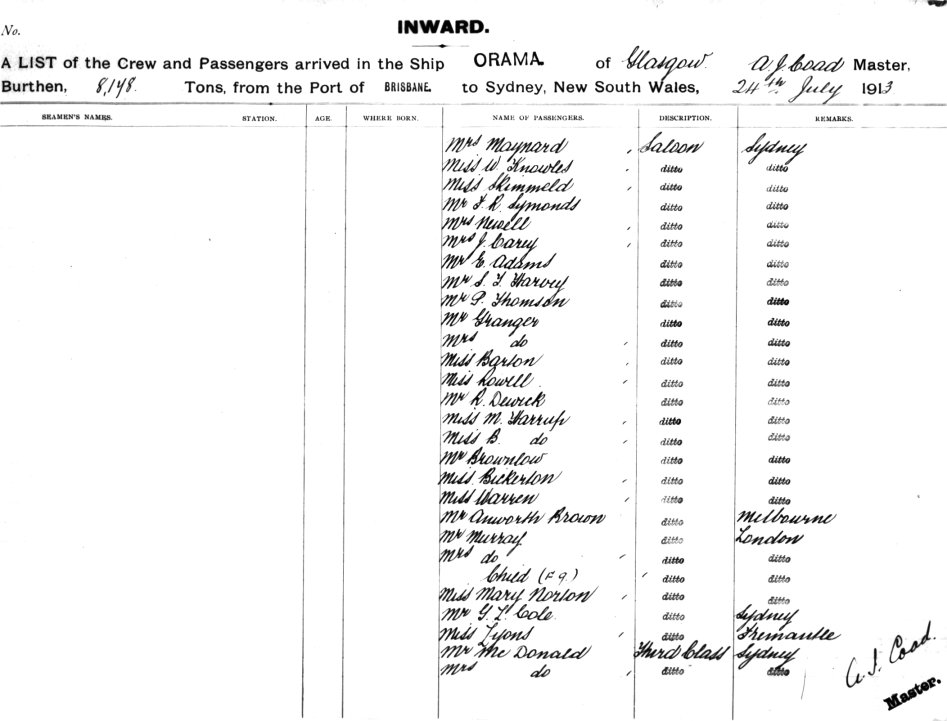 No.
INWARD.
A LIST of the Crew and Passengers arrived in the Ship ORAMA. of Glasgow. A J Coad Master,
Burthen, 8,148. Tons, from the Port of BRISBANE. to Sydney, New South Wales, 24th July 1913
SEAMEN'S NAMES. STATION. AGE. WHERE BORN. NAME OF PASSENGERS. DESCRIPTION. REMARKS.
Mrs Maynard Saloon Sydney
Miss W Knowles ditto ditto
Miss Skimmeld ditto ditto
Mr F. R. Symonds ditto ditto
Mrs Newell ditto ditto
Mrs J. Carey ditto ditto
Mr E. Adams ditto ditto
Mr S. F. Harvey ditto ditto
Mr P. Thomson ditto ditto
Mr Granger ditto ditto
Mrs do ditto ditto
Miss Barton ditto ditto
Miss Lowell ditto ditto
Mr R. Dewick ditto ditto
Miss M. Harrup ditto ditto
Miss B. do ditto ditto
Mr Brownlow ditto ditto
Miss Bickerton ditto ditto
Miss Warren ditto ditto
Mr Anworth Brown ditto Melbourne
Mr Murray ditto London
Mrs do ditto ditto
Child (F 9) ditto ditto
Miss Mary Norton ditto ditto
Mr G. L. Cole ditto Sydney
Miss Lyons ditto Fremantle
Mr Mc Donald Third Class Sydney
Mrs do ditto ditto
A. J. Coad.
Master.